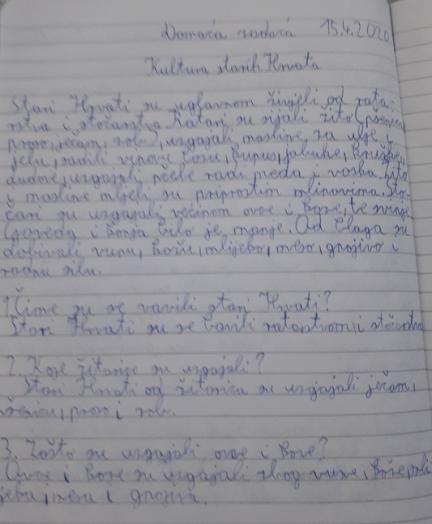 Domaća zadaća 15.4.2020
Kultura starih Hrvata
Stari Hrvati su uglavnom živjeli od rata-
rstva i stočarstva. Ratari su sijali žito (pšenicu
proso, ječam, zob), uzgajali masline za ulje i
jelu, sadili vinovu lozu, kupus, jabuke, kruške,
dudove, uzgajali pčele radi meda i voska. Žito
i masline mljeli su priprostim mlinovima. Sto-
čari su uzgajali većinom ovce i koze, te svinje
(goveda i konja bilo je manje. Od blaga su
dobivali vunu, kožu, mlijeko, meso, gnojivo i
radnu silu.
1. Čime su se bavili stari Hrvati?
Stari Hrvati su se bavili ratarstvom i stočarstvom
2. Koje žitarice su uzgajali?
Stari Hrvati od žitarica su uzgajali ječam,
pšenicu, proso i zob.
3. Zašto su uzgajali ovce i koze?
Ovce i koze su uzgajali zbog vune, kože, mli
jeka, mesa i gnojiva.